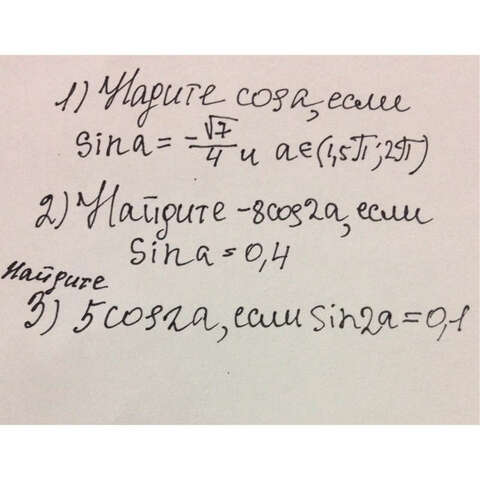 1) Надите cosa, если
sina = -√7/4 и a∈(1,5π; 2π)
2) Найдите -8cos2a, если
sina = 0,4
Найдите
3) 5cos2a, если sin2a = 0,1